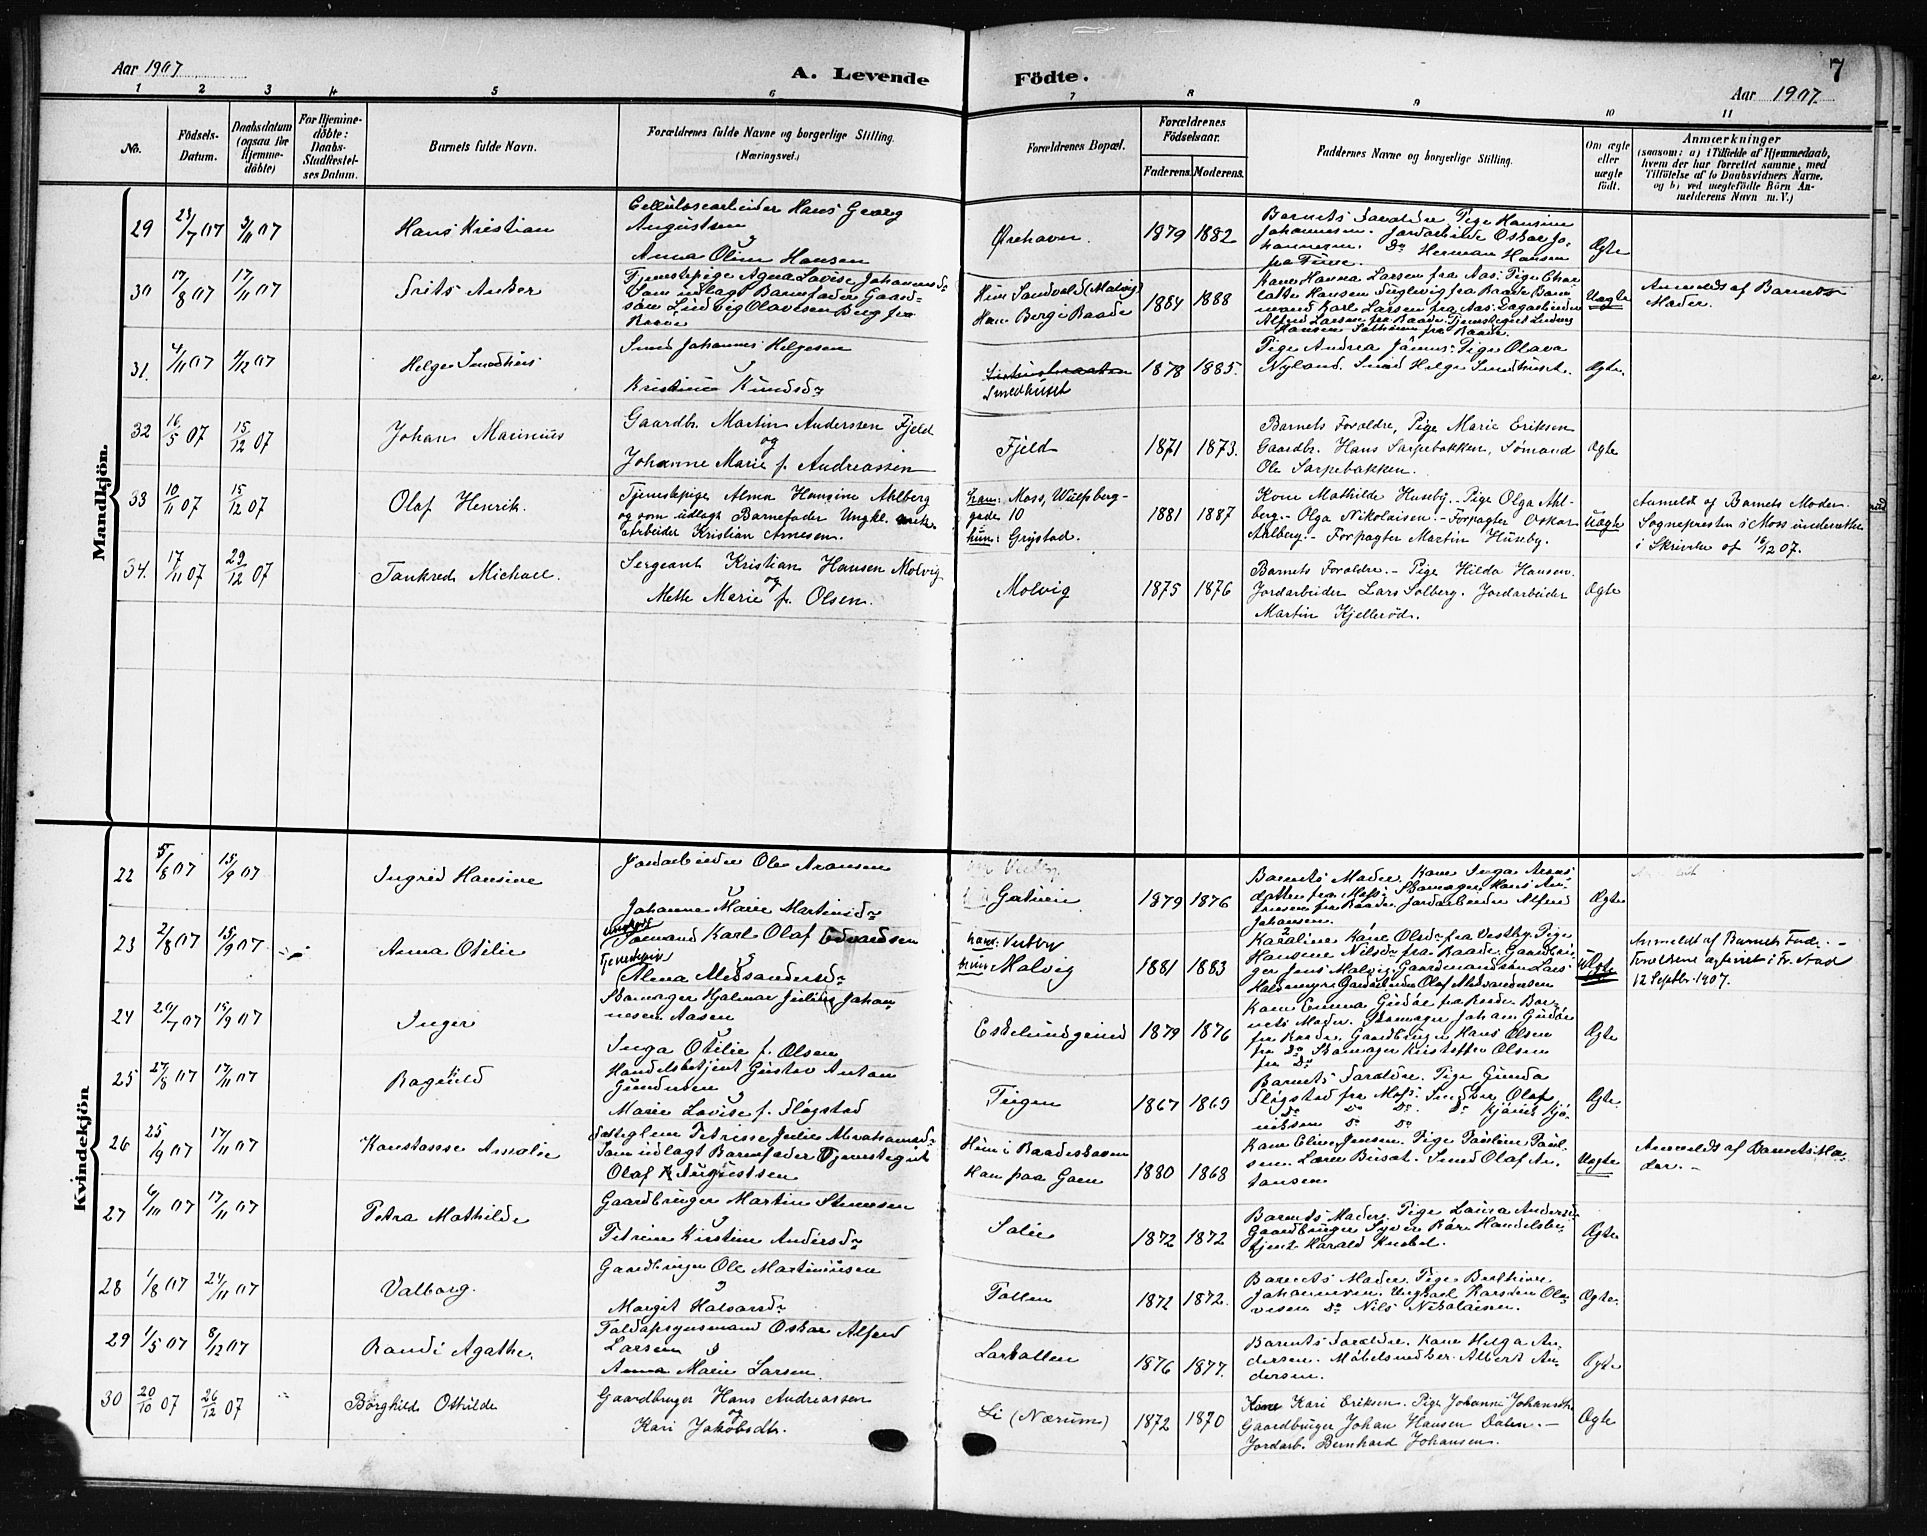 Aar 1907
A. Levende
Födte.
7
Aar 1907.
1 2 3 4 5 6 7 8 9 10 11
No.
Födsels-
Datum.
Daabsdatum
(ogsaa for
Hjemme-
döbte)
For Hjemme-
döbte:
Daabs-
Stadfæstel-
ses Datum.
Barnets fulde Navn.
Forældrenes fulde Navne og borgerlige Stilling.
(Næringsvei.)
Forældrenes Bopæl.
Forældrenes
Födselsaar.
Faderens. Moderens.
Faddernes Navne og borgerlige Stilling.
Om ægte
eller
uægte
födt.
Anmærkninger
(saasom: a) i Tilfælde af Hjemmedaab,
hvem der har forrettet samme, med
Tilföielse af to Daabsvidners Navne,
og b) ved uægtefödte Börn An-
melderens Navn m. V.)
Mandkjön.
29 23/7 07 3/11 07 Hans Kristian
Cellulosearbeider Hans Georg
Augustsen
Anna Oline Hansen
Ørehavn. 1879 1882
Barnets Foraldre, Pige Hansine
Johannesen. Jordarbeide Oskar Jo-
hannesen. Do Herman Hansen
fra Tune.
Ægte
30 17/8 07 17/11 07 Frits Anker
Tjenestepige Agna Lovise Johannesd:
Som udlagt Barnefader Gaard-
søn Ludvig Olavesen Berg fra
Raade
Hun Sandvold (Molvig)
Han Berg i Raade
1884 1888
Kone Hanna Larsen fra Aas. Pige Char-
latte Hansen Fuglevig fra Raade
mand Karl Larsen fra Aas.
Alfred Larsen fra Raade. Tjenestegut Ludvig
Hansen fra Raade.
Uægte
Anmeldt af Barnets
Moder.
31. 4/11 07 1/12 07 Helge Smedhus
Smed Johannes Helgesen
Kristine Knudsd:
Smedhuset
1878 1885.
Pige Andrea Jönnes. Pige Olava
Nyland. Smed Helge Smedhuset.
Ægte.
32 16/5 07 15/12 07 Johan Marinius
Gaardbr. Martin Anderssen Fjeld
og
Johanne Marie f. Andreassen
Fjeld 1871 1873.
Barnets Foraldre, Pige Marie Eriksen
Gaardbr. Hans Sarpebakken, Sømand
Ole Sarpebakken.
Ægte
33 10/11 07 15/12 07 Olaf Henrik.
Tjenstepige Alma Hansine Ahlberg
og som udlagt Barnefader Ungkl.
Arbeider Kristian Arnesen.
han: Moss, Wulfsberg-
gade 10
hun: Grystad.
1881 1887
Kone Mathilde Huseby. - Pige Olga Ahl-
berg. - Olga Nikolaisen. - Forpagter Oskar
Ahlberg. - Forpagter Martin Huseby.
Uægte
Anmeldt af Barnets Moder.
Sognepresten i Moss underrettet
i Skrivelse af 16/12 07.
34. 17/11 07 29/12 07 Tankred Michael.
Sergeant Kristian Hansen Molvig
og
Mette Marie f. Olsen.
Molvig 1875 1876
Barnets Foraldre. - Pige Hilda Hansen.
Jordarbeider Lars Solberg. Jordarbeider
Martin Kjellerød.
Ægte
Kvindekjön
22 5/8 07 15/9 07 Ingrid Hansine
Jordarbeider Ole Aronsen
Johanne Marie Martinsd:
1879 1876
Barnets Moder. Kone Inga Arons-
datter fra Moss. Skomager Hans An-
dresen fra Raade. Jordarbeider Alfred
Johansen.
Ægte
23 2/8 07 15/9 07 Anna Otilie
Ungkarl
Sømand Karl Olaf Edvardsen
Tjenestepige
Alma Aleksandersd:
han: Vestby
hun: Molvig
1881 1883
Karoline Kone Olsd: fra Vestby. Pige
Hansine Nilsd: fra Raade. Gaardbru-
ger Jens Molvig. Gaardmandssøn Lars
Haldemyr. Gaardarbeider Olaf Aleksandersen
Ægte
Anmeldt af Barnets Fad. -
Foraldrene ægteviet i Fr.stad
12 Septbr. 1907.
24 20/7 07 15/9 07 Inger
Skomager Hjalmar Julius Johan-
nesen Aasen
Inga Otilie f. Olsen
Eskelundgrind 1879 1876
Kone Emma Gudøe fra Raade. Bar-
nets Moder. Skomager Johan Gudøe
fra Raade. Gaardbruger Hans Olsen
fra Do Skomager Kristoffer Olsen
fra Do
Ægte
25 27/8 07 17/11 07 Ragnhild
Handelsbetjent Gustav Anton
Gundersen
Marie Lovise f. Fløgstad
Teigen 1867 1869
Barnets Foraldre. Pige Gunda
Fløgstad fra Moss. Smedbr Olaf
Ægte.
26 25/9 07 17/11 07 Konstanse Amalie
Petrisse Julie Abrahamsd:
Som udlagt Barnefader Tjenestegut
Olaf Augustsen
Hun i Raadeskoven
Han paa Goen
1880 1868
Kone Eline Jensen. Pige Pauline Paul-
sen. Lærer Busat. Smed Olaf An-
tonsen
Uægte
Anmeldt af Barnets Mo-
der. -
27 6/10 07 17/11 07 Petra Mathilde
Gaardbruger Martin Stenersen
Petrine Kirstine Andersd:
Solie 1872 1872
Barnets Moder. Pige Laura Andersd:
Gaardbruger Syver Bøe Handelsbe-
tjent Harald Knobel.
Ægte
28 1/8 07 24/11 07 Valborg.
Gaardbruger Ole Martiniussen
Margit Halvorsd:
Tollen 1872 1872.
Barnets Moder. Pige Berthine
Johannesen. Ungkarl Karsten Ola-
vesen Do Nils Nikolaisen.
Ægte.
29 1/5 07 8/12 07 Randi Agathe.
Toldopsynsmand Oskar Alfred
Larsen
Anna Marie Larsen.
Larkollen 1876 1877.
Barnets Foraldre. Kone Helga An-
dersen. Møbelsnedker Albert An-
dersen.
Ægte
30 20/10 07 26/12 07 Borghilde Othilde
Gaardbruger Hans Andreassen
og
Kari Jakobsdtr.
Li (Nærum) 1872 1870
Kone Kari Eriksen. Pige Johanne Johansdtr.
Gaardbruger Johan Hansen Dalen. -
Jordarb. Bernhard Johansen.
Ægte